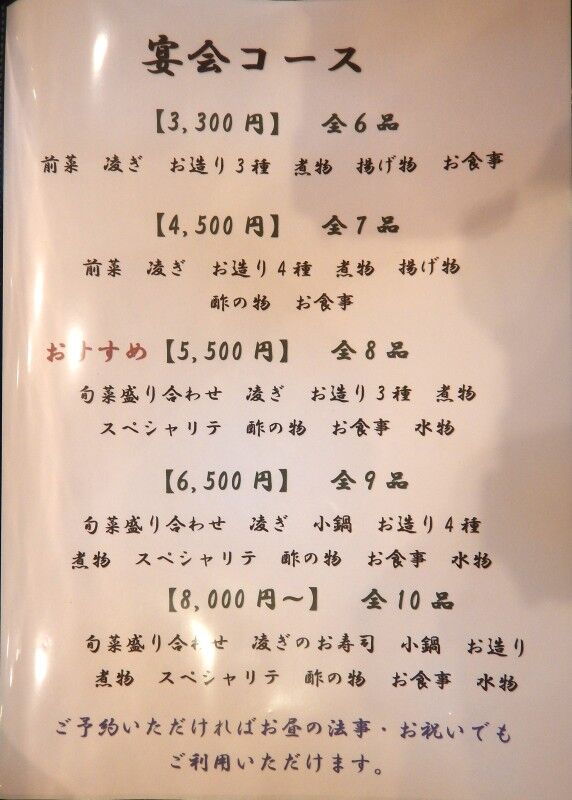 宴会コース
【3,300円】 全6品
前菜 凌ぎ お造り3種 煮物 揚げ物 お食事
【4,500円】 全7品
前菜 凌ぎ お造り4種 煮物 揚げ物
酢の物 お食事
おすすめ【5,500円】 全8品
旬菜盛り合わせ 凌ぎ お造り3種 煮物
スペシャリテ 酢の物 お食事 水物
【6,500円】 全9品
旬菜盛り合わせ 凌ぎ 小鍋 お造り4種
煮物 スペシャリテ 酢の物 お食事 水物
【8,000円〜】 全10品
旬菜盛り合わせ 凌ぎのお寿司 小鍋 お造り
煮物 スペシャリテ 酢の物 お食事 水物
ご予約いただければお昼の法事・お祝いでも
ご利用いただけます。